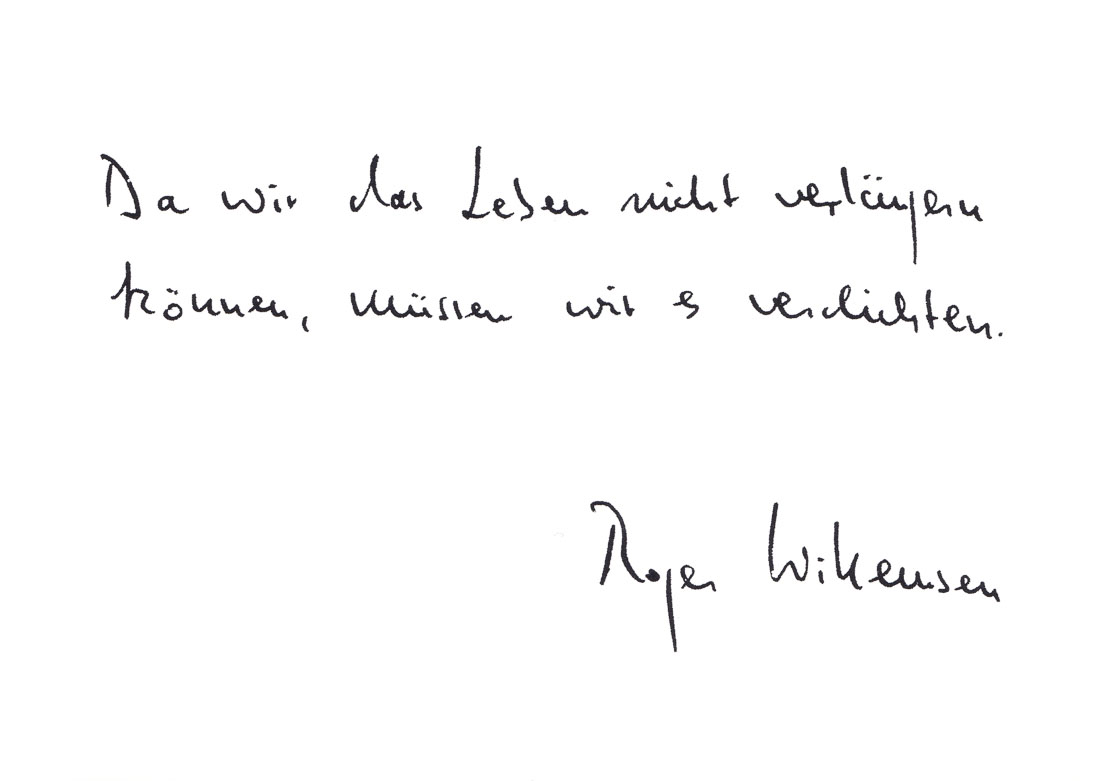 Da wir das Leben nicht verlängern
können, müssen wir es verdichten.
Roger Willemsen